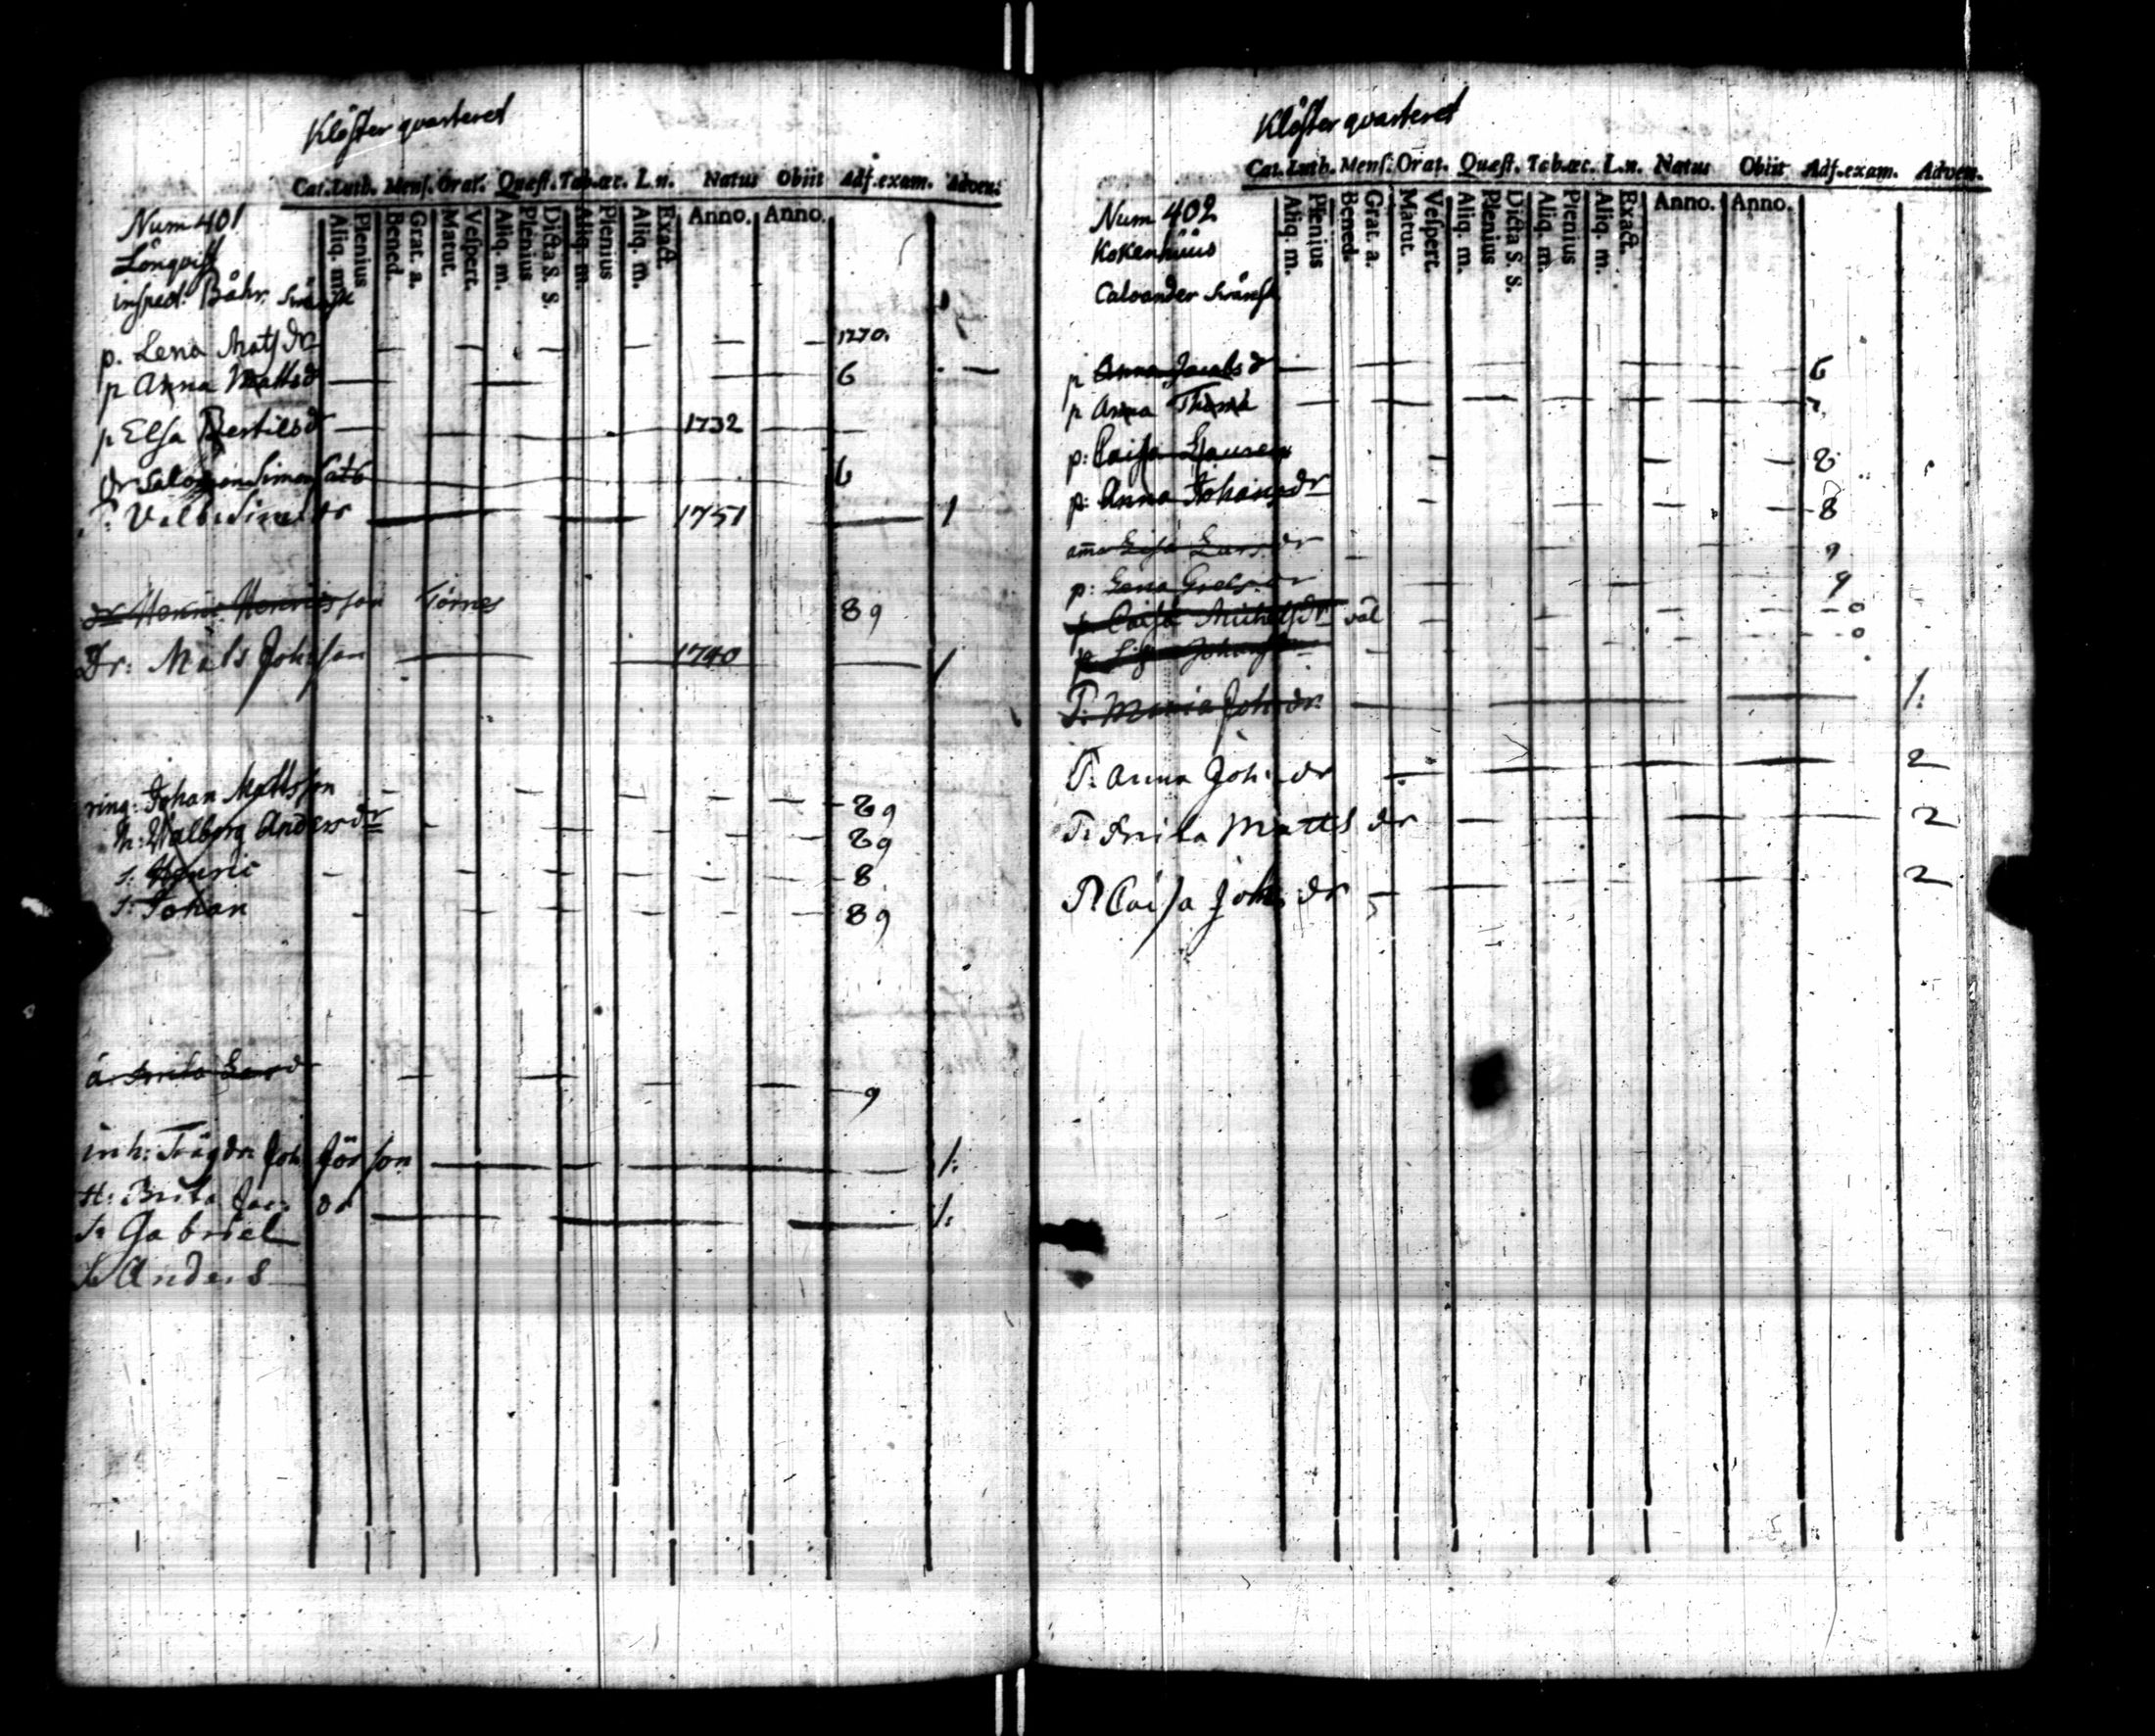 Klöster qvarteret
Cat. Luth. Menſ. Orat. Quæſt. Tab. œc. L. n. Natus Obiit Adſ. exam. Adven.
Aliq. m. Plenius Bened. Grat. a. Matut. Veſpert. Aliq. m. Plenius Dicta S. S. Aliq. m. Plenius Aliq. m. Exact. Anno. Anno.
Num 401
Lönqvist
inspect: Båhr.
p. Lena Mats dr 1770.
p Anna Matts d 6
p Elsa Bertils dr 1732
dr Salomon Simon 6
P: Valb: Sim: dr 1751 1
dr Henric Henricsson 89
Dr: Mats Johsson 1740 1
Johan Mattsson 89
h: Walborg Anders dr 89
s. Henric 8
s: Johan 89
Brita Lars d 9
inh: Trägdr: Joh Jörson 1:
H: Brita Jac: dr 1:
S: Gabriel
S: Anders
Klöster qvarteret
Cat. Luth. Menſ. Orat. Quæſt. Tab. œc. L. n. Natus Obiit Adſ. exam. Adven.
Aliq. m. Plenius Bened. Grat. a. Matut. Veſpert. Aliq. m. Plenius Dicta S. S. Aliq. m. Plenius Aliq. m. Exact. Anno. Anno.
Num 402
Kokenhuus
p Anna Jacobs d 6
p Anna 7.
p: Caisa 8
p: Anna Johans dr 8
Lisa Lars dr 9
p: Lena 9
p. Caisa Michels dr 0
p 0
P: Maria Joh: dr. 1:
P. Anna Joh: dr 2
P: Brita Matts dr 2
P: Caisa Joh: dr 2